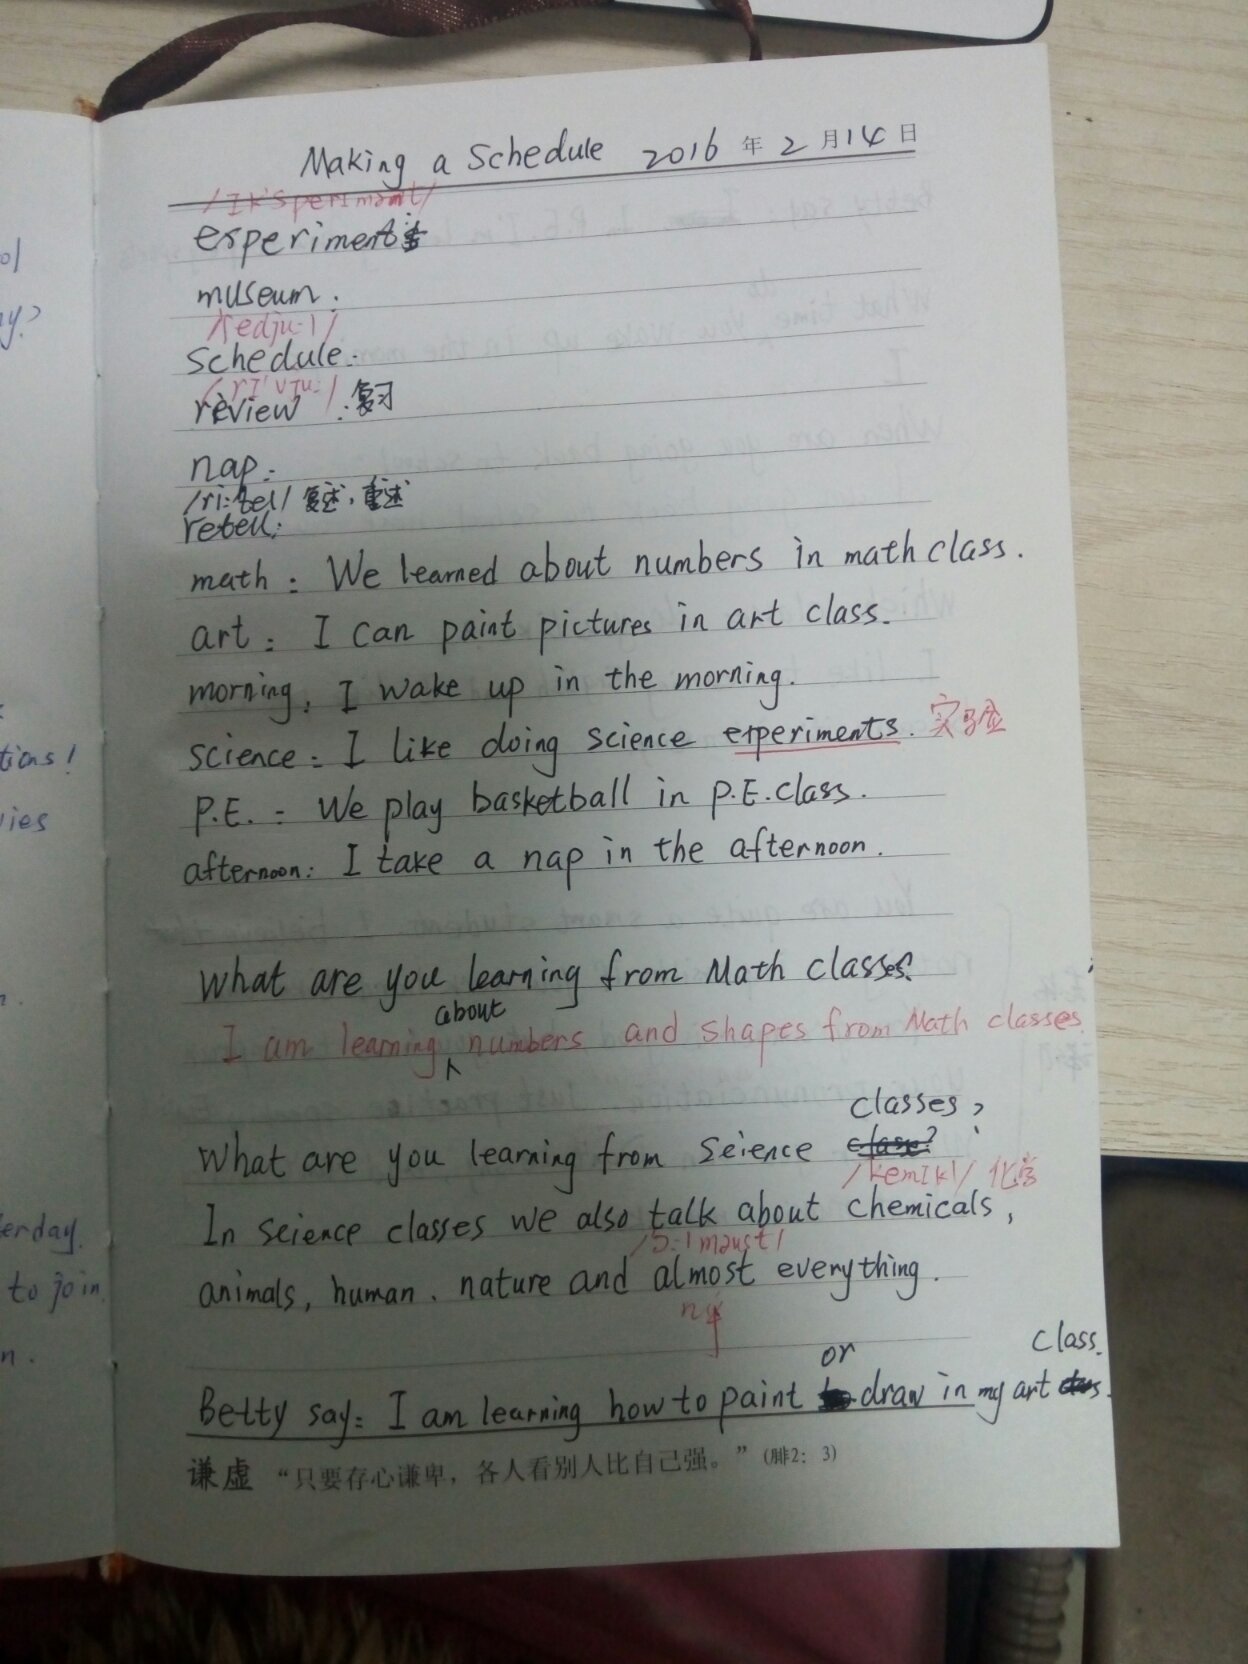 Making a Schedule 2016 年 2 月 14 日
/Ik'sperImənt/
experiment
museum.
/ʃedju:l/
schedule:
/rI'vju:/
review : 复习
nap:
/ri:tel/ 复述，重述
retell:
math : We learned about numbers in math class.
art : I can paint pictures in art class.
morning, I wake up in the morning.
science : I like doing science experiments. 实验
P.E. : We play basketball in P.E. class.
afternoon: I take a nap in the afternoon.
What are you learning from Math classes?
about
I am learning numbers and shapes from Math classes.
classes?
What are you learning from science class?
/kemIkl/ 化学
In science classes we also talk about chemicals,
/ɔ:lməust/
animals, human, nature and almost everything.
or class.
Betty say: I am learning how to paint draw in my art class.
谦虚 “只要存心谦卑，各人看别人比自己强。” (腓2: 3)
ol
ay?
tions!
vies
erday.
to join
n.